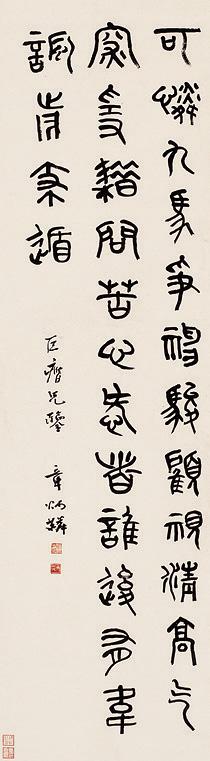 可憐九馬爭神駿顧視清高气
罙㥯籍問苦心愛者誰後有韋
諷歬支遁
兄鑒 章炳麟